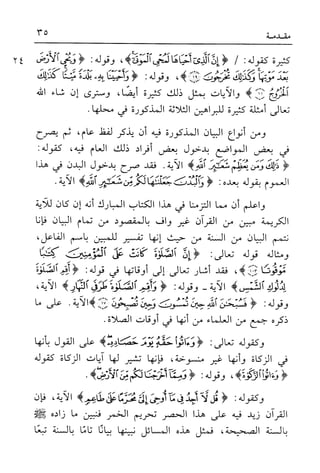 مقدمة ٣٥
كثيرة كقوله: / ﴿إِنَّ ٱلَّذِىٓ أَحْيَاهَا لَمُحْىِ ٱلْمَوْتَىٰٓ﴾، وقوله: ﴿وَيُحْىِ ٱلْأَرْضَ ٢٤
بَعْدَ مَوْتِهَا وَكَذَٰلِكَ تُخْرَجُونَ ﴾، وقوله: ﴿وَأَحْيَيْنَا بِهِۦ بَلْدَةً مَّيْتًا كَذَٰلِكَ
ٱلْخُرُوجُ ﴾ والآيات بمثل ذلك كثيرة أيضًا، وسترى إن شاء الله
تعالى أمثلة كثيرة للبراهين الثلاثة المذكورة في محلها.
ومن أنواع البيان المذكورة فيه أن يذكر لفظ عام، ثم يصرح
في بعض المواضع بدخول بعض أفراد ذلك العام فيه، كقوله:
﴿ذَٰلِكَ وَمَن يُعَظِّمْ شَعَٰٓئِرَ ٱللَّهِ﴾ الآية. فقد صرح بدخول البدن في هذا
العموم بقوله بعده: ﴿وَٱلْبُدْنَ جَعَلْنَٰهَا لَكُم مِّن شَعَٰٓئِرِ ٱللَّهِ﴾ الآية.
واعلم أن مما التزمنا في هذا الكتاب المبارك أنه إن كان للآية
الكريمة مبين من القرآن غير واف بالمقصود من تمام البيان فإنا
نتمم البيان من السنة من حيث إنها تفسير للمبين باسم الفاعل،
ومثاله قوله تعالى: ﴿إِنَّ ٱلصَّلَوٰةَ كَانَتْ عَلَى ٱلْمُؤْمِنِينَ كِتَٰبًا
مَّوْقُوتًا ﴾، فقد أشار تعالى إلى أوقاتها في قوله: ﴿أَقِمِ ٱلصَّلَوٰةَ
لِدُلُوكِ ٱلشَّمْسِ﴾ الآية - وقوله: ﴿وَأَقِمِ ٱلصَّلَوٰةَ طَرَفَىِ ٱلنَّهَارِ﴾ الآية،
وقوله: ﴿فَسُبْحَٰنَ ٱللَّهِ حِينَ تُمْسُونَ وَحِينَ تُصْبِحُونَ ﴾ الآية. على ما
ذكره جمع من العلماء من أنها في أوقات الصلاة.
وكقوله تعالى: ﴿وَءَاتُوا۟ حَقَّهُۥ يَوْمَ حَصَادِهِۦ﴾ على القول بأنها
في الزكاة وأنها غير منسوخة، فإنها تشير لها آيات الزكاة كقوله
﴿وَءَاتُوا۟ ٱلزَّكَوٰةَ﴾، وقوله: ﴿وَمِمَّآ أَخْرَجْنَا لَكُم مِّنَ ٱلْأَرْضِ﴾.
وكقوله: ﴿قُل لَّآ أَجِدُ فِى مَآ أُوحِىَ إِلَىَّ مُحَرَّمًا عَلَىٰ طَاعِمٍ﴾ الآية، فإن
القرآن زيد فيه على هذا الحصر تحريم الخمر فنبين ما زاده ﷺ
بالسنة الصحيحة، فمثل هذه المسائل نبينها بيانًا تامًا بالسنة تبعًا